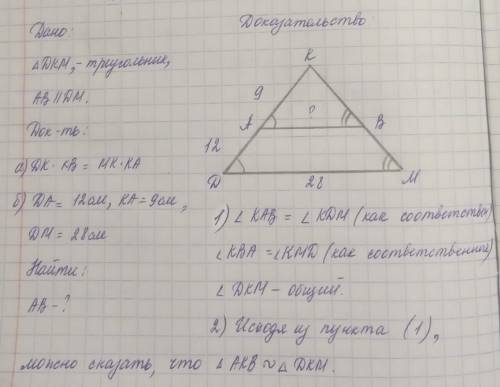 Дано:
△DKM, - треугольник,
AB || DM.
Док-ть:
а) DK · KB = MK · KA
б) DA = 12см, KA = 9см,
DM = 28см
Найти:
AB - ?
Доказательство
K
9
?
A
B
12
D
28
M
1) ∠KAB = ∠KDM (как соответствен)
∠KBA = ∠KMD (как соответственные)
∠DKM - общий.
2) Исходя из пункта (1),
можно сказать, что △AKB ~ △DKM.